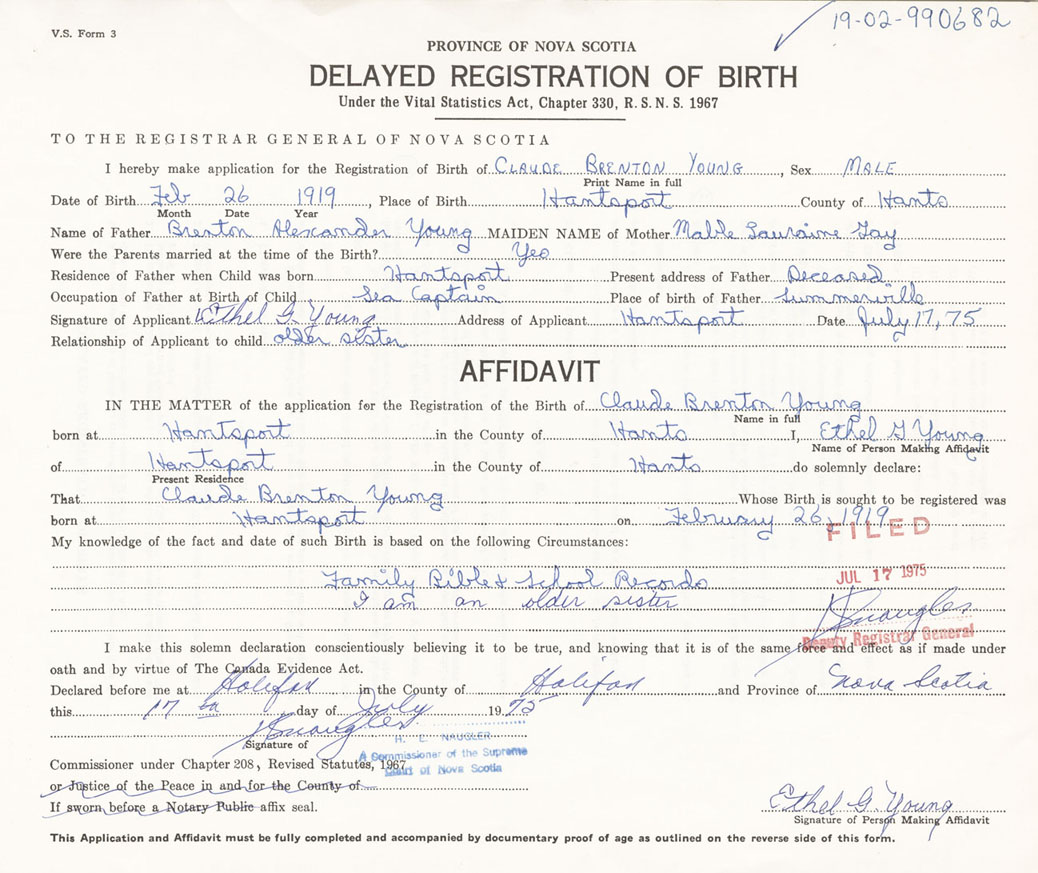 V.S. Form 3
19-02-990682
PROVINCE OF NOVA SCOTIA
DELAYED REGISTRATION OF BIRTH
Under the Vital Statistics Act, Chapter 330, R. S. N. S. 1967
TO THE REGISTRAR GENERAL OF NOVA SCOTIA
I hereby make application for the Registration of Birth of CLAUDE BRENTON YOUNG, Sex MALE
Print Name in full
Date of Birth Feb 26 1919, Place of Birth Hantsport County of Hants
Month Date Year
Name of Father Brenton Alexander Young MAIDEN NAME of Mother Mable Lauraine Gay
Were the Parents married at the time of the Birth? Yes
Residence of Father when Child was born Hantsport Present address of Father Deceased
Occupation of Father at Birth of Child Sea Captain Place of birth of Father Summerville
Signature of Applicant Ethel G. Young Address of Applicant Hantsport Date July 17, 75
Relationship of Applicant to child older sister
AFFIDAVIT
IN THE MATTER of the application for the Registration of the Birth of Claude Brenton Young
Name in full
born at Hantsport in the County of Hants I, Ethel G Young
Name of Person Making Affidavit
of Hantsport in the County of Hants do solemnly declare:
Present Residence
That Claude Brenton Young Whose Birth is sought to be registered was
born at Hantsport on February 26, 1919
FILED
My knowledge of the fact and date of such Birth is based on the following Circumstances:
JUL 17 1975
Family Bible & School Records
I am an older sister
Deputy Registrar General
I make this solemn declaration conscientiously believing it to be true, and knowing that it is of the same force and effect as if made under
oath and by virtue of The Canada Evidence Act.
Declared before me at Halifax in the County of Halifax and Province of Nova Scotia
this 17 th day of July 1975
H. L. NAUGLER
Signature of
A Commissioner of the Supreme
Commissioner under Chapter 208, Revised Statutes, 1967
Court of Nova Scotia
or Justice of the Peace in and for the County of
If sworn before a Notary Public affix seal.
Ethel G. Young
Signature of Person Making Affidavit
This Application and Affidavit must be fully completed and accompanied by documentary proof of age as outlined on the reverse side of this form.